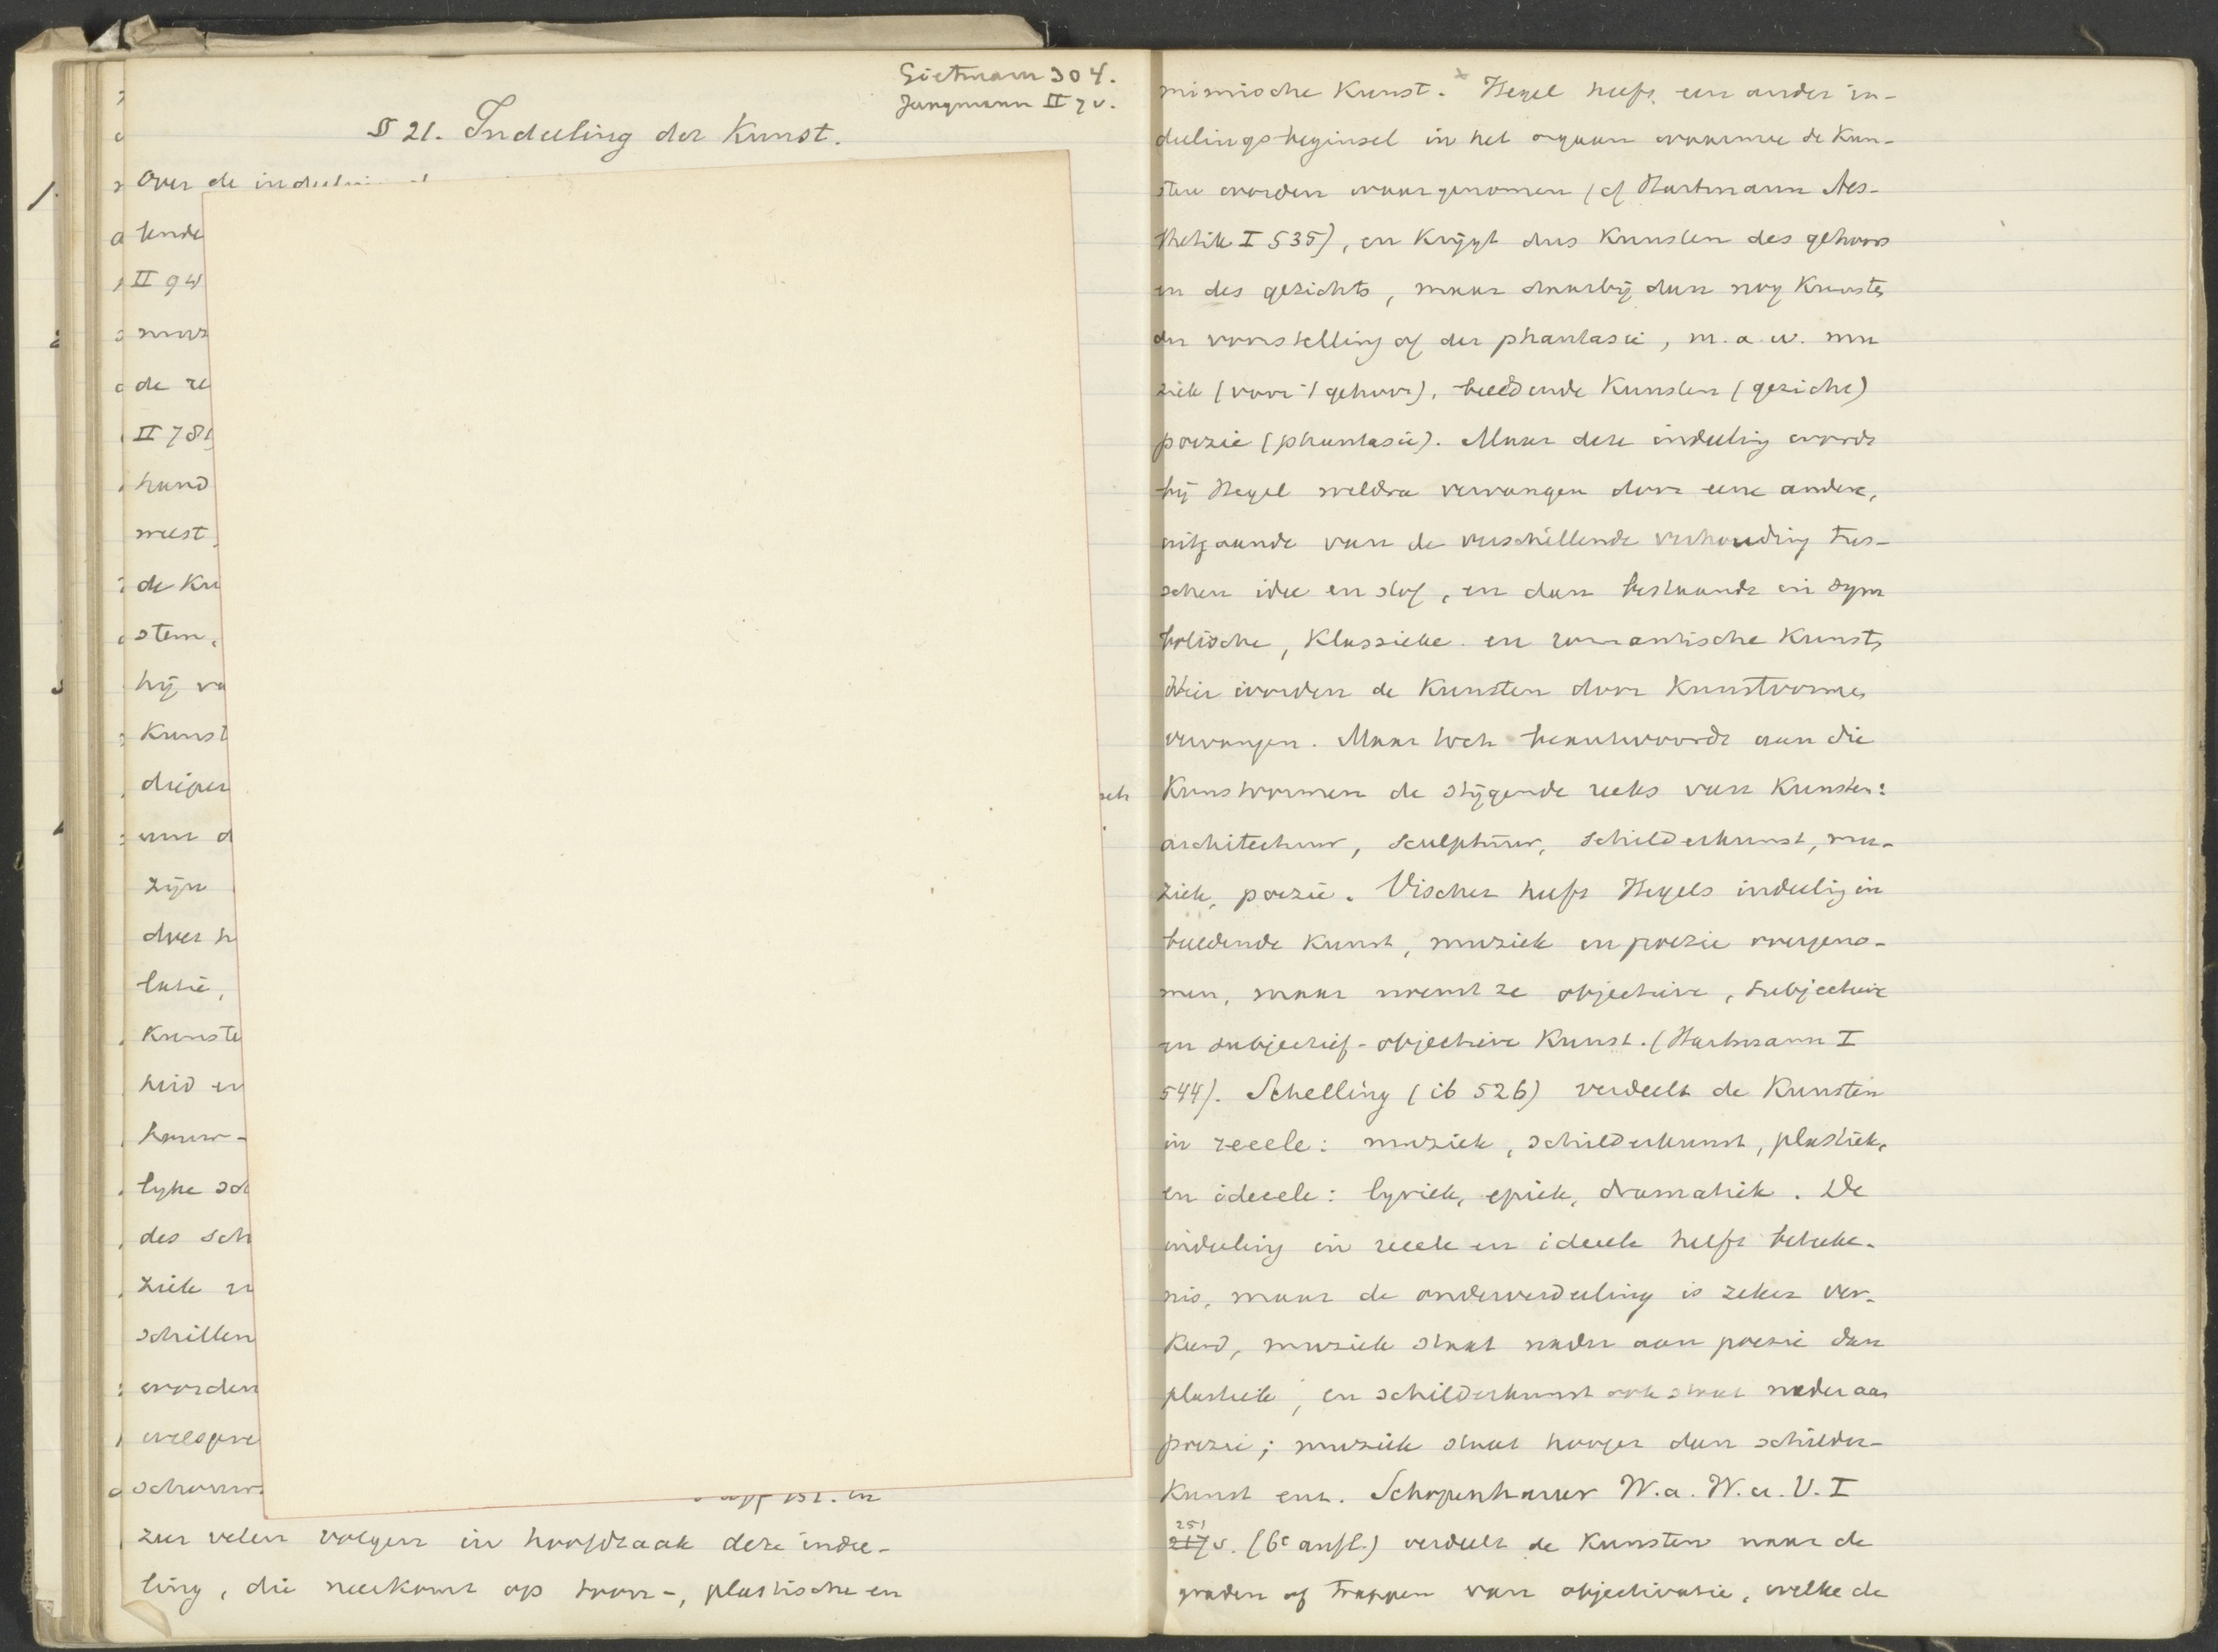 Gietmann 304.
Jungmann II 7 v.
§ 21. Indeeling der Kunst.
Over de
tende
II 94
muz
de re
II 781
hand
meest
de Ku
stem,
hij va
Kunst
drieër
um d
zijn
door h
tatie,
Kunste
heid en
bouw-
lyke sch
des sch
ziek
schillen
worden
welspre
schouw
zen velen volgen in hoofdzaak deze indee-
ling, die neerkomt op toon-, plastische en
mimische Kunst. x Hegel heeft een ander in-
deelingsbeginsel in het orgaan waarmee de Kun-
sten worden waargenomen (cf Hartmann Aes-
thetik I 535), en Krijgt dus Kunsten des gehoors
en des gezichts, maar daarbij dan nog Kunsten
der voorstelling of der phantasie, m.a.w. mu
ziek (voor 't gehoor), beeldende Kunsten (gezicht)
poezie (phantasie). Maar deze indeeling wordt
bij Hegel weldra vervangen door eene andere,
uitgaande van de verschillende verhouding tus-
schen idee en stof, en dan bestaande in sym
bolische, Klassieke en romantische Kunst,
Hier worden de Kunsten door Kunstvormen
vervangen. Maar toch beantwoordt aan die
Kunstvormen de stijgende reeks van Kunsten:
architectuur, sculptuur, schilderkunst, mu-
ziek, poezie. Vischer heeft Hegels indeeling in
beeldende Kunst, muziek en poezie overgeno-
men, maar noemt ze objectieve, subjectieve
en subjectief-objectieve Kunst. (Hartmann I
544). Schelling (ib 526) verdeelt de Kunsten
in reeele: muziek, schilderkunst, plastiek,
en ideeele: lyriek, epiek, dramatiek. De
indeeling in reeele en ideeele heeft beteeke-
nis, maar de onderverdeeling is zeker ver-
keerd, muziek staat nader aan poezie dan
plastiek, en schilderkunst ook staat nader aan
poezie; muziek staat hooger dan schilder-
kunst enz. Schopenhauer W.a.W.u.V. I
251
217 v. (6e aufl.) verdeelt de Kunsten naar de
graden of trappen van objectivatie, welke de